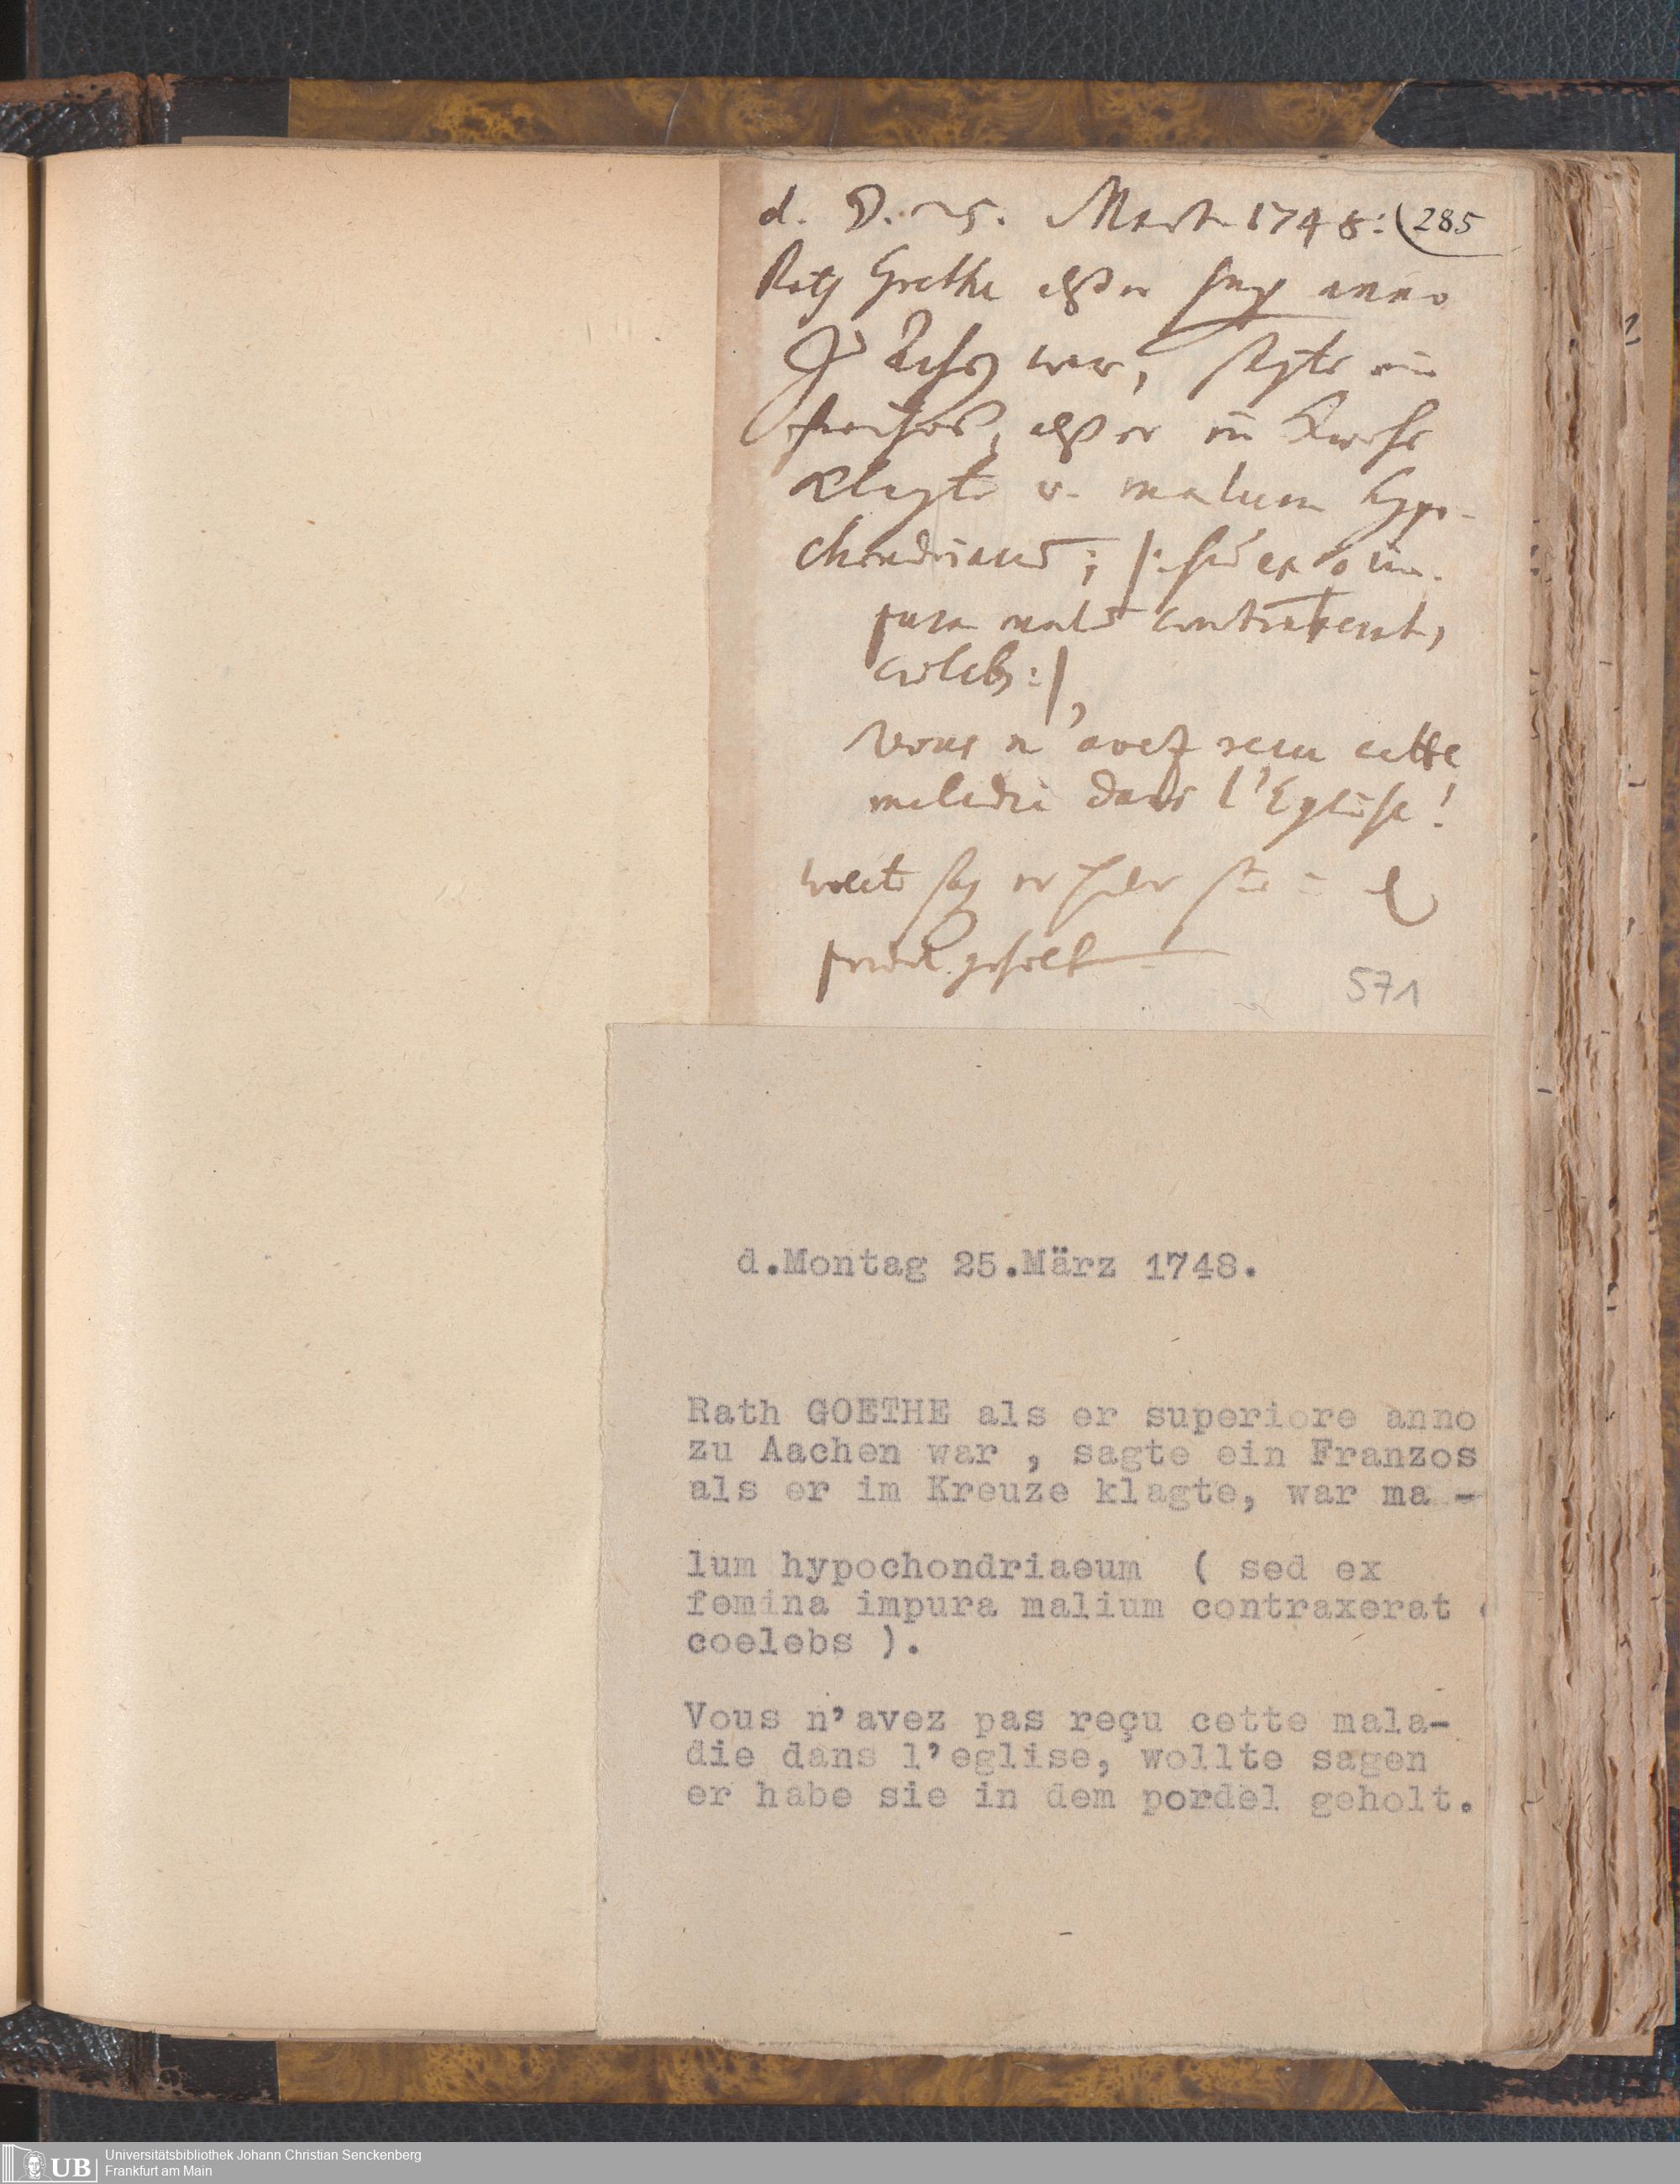 d. 25. Mart 1748:
285
Rath Goethe alß er sup. anno
zu Achen war, sagte ein
Franzos, alß er im Kreuze
klagte v. malum hypo-
chondriacu; |: sed ex im-
pura malu contraxerat,
coelebs :|,
vous n'avez recu cette
maladie dans l'Eglise!
wollt sag er habe sie in
pordel geholt
571
d.Montag 25.März 1748.
Rath GOETHE als er superiore anno
zu Aachen war , sagte ein Franzos
als er im Kreuze klagte, war ma -
lum hypochondriaeum ( sed ex
femina impura malium contraxerat
coelebs ).
Vous n'avez pas reçu cette mala-
die dans l'eglise, wollte sagen
er habe sie in dem pordel geholt.
UB
Universitätsbibliothek Johann Christian Senckenberg
Frankfurt am Main